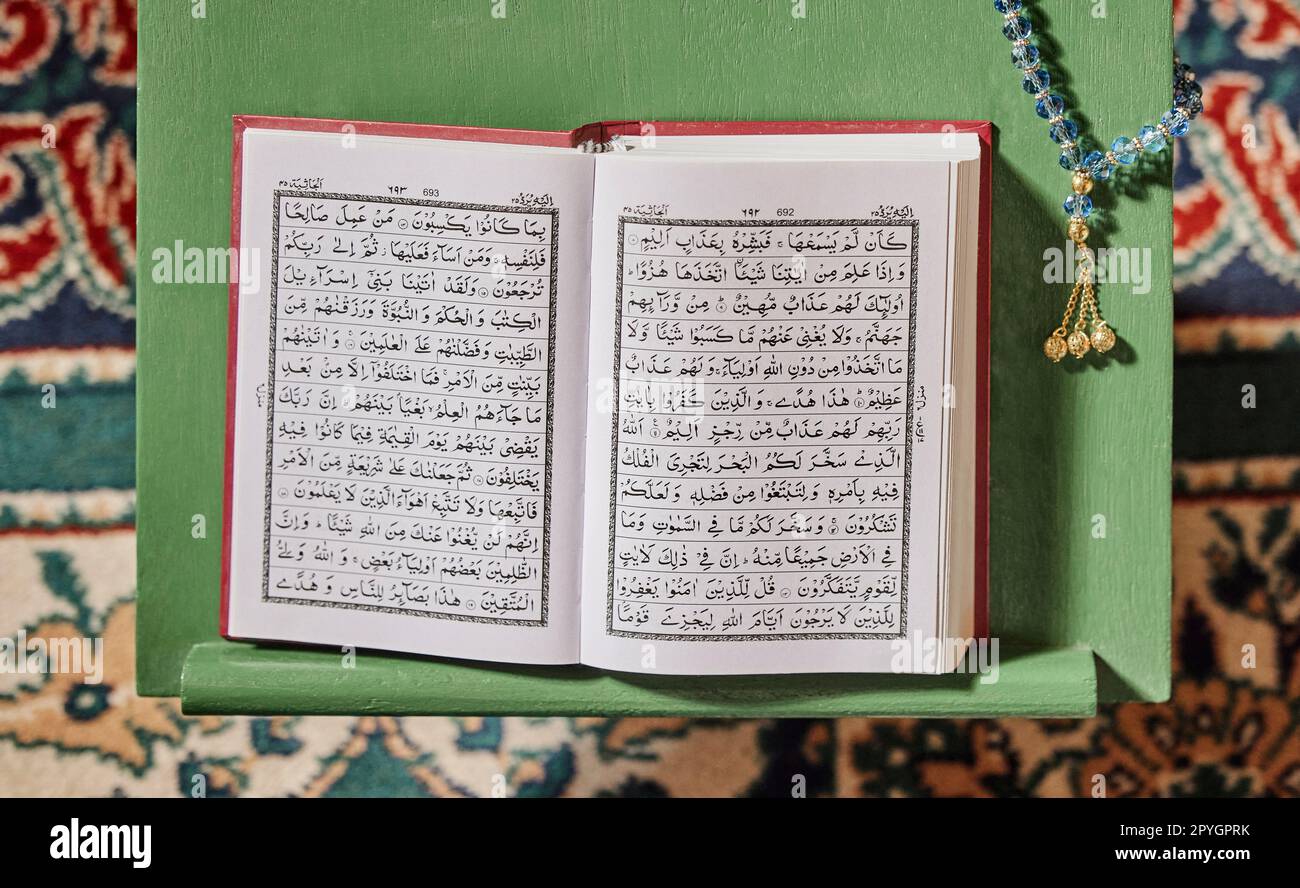 اِلَيْهِ يُرَدُّ ٢٥ ٦٩٢ 692 اَلْجَاثِيَة ٤٥
كَاَنْ لَّمْ يَسْمَعْهَا ۚ فَبَشِّرْهُ بِعَذَابٍ اَلِيْمٍ ۝٨
وَاِذَا عَلِمَ مِنْ اٰيٰتِنَا شَيْئَاۨ اتَّخَذَهَا هُزُوًا ؕ
اُولٰٓئِكَ لَهُمْ عَذَابٌ مُّهِيْنٌ ۝٩ مِنْ وَّرَآئِهِمْ
جَهَنَّمُ ۚ وَلَا يُغْنِيْ عَنْهُمْ مَّا كَسَبُوْا شَيْئًا وَّلَا
مَا اتَّخَذُوْا مِنْ دُوْنِ اللّٰهِ اَوْلِيَآءَ ۚ وَلَهُمْ عَذَابٌ
عَظِيْمٌ ۝١٠ هٰذَا هُدًى ۚ وَالَّذِيْنَ كَفَرُوْا بِاٰيٰتِ
رَبِّهِمْ لَهُمْ عَذَابٌ مِّنْ رِّجْزٍ اَلِيْمٌ ۝١١ اَللّٰهُ
الَّذِيْ سَخَّرَ لَكُمُ الْبَحْرَ لِتَجْرِيَ الْفُلْكُ
فِيْهِ بِاَمْرِهٖ وَلِتَبْتَغُوْا مِنْ فَضْلِهٖ وَلَعَلَّكُمْ
تَشْكُرُوْنَ ۝١٢ وَسَخَّرَ لَكُمْ مَّا فِي السَّمٰوٰتِ وَمَا
فِي الْاَرْضِ جَمِيْعًا مِّنْهُ ؕ اِنَّ فِيْ ذٰلِكَ لَاٰيٰتٍ
لِّقَوْمٍ يَّتَفَكَّرُوْنَ ۝١٣ قُلْ لِّلَّذِيْنَ اٰمَنُوْا يَغْفِرُوْا
لِلَّذِيْنَ لَا يَرْجُوْنَ اَيَّامَ اللّٰهِ لِيَجْزِيَ قَوْمًا
اِلَيْهِ يُرَدُّ ٢٥ ٦٩٣ 693 اَلْجَاثِيَة ٤٥
بِمَا كَانُوْا يَكْسِبُوْنَ ۝١٤ مَنْ عَمِلَ صَالِحًا
فَلِنَفْسِهٖ ۚ وَمَنْ اَسَآءَ فَعَلَيْهَا ۫ ثُمَّ اِلٰى رَبِّكُمْ
تُرْجَعُوْنَ ۝١٥ وَلَقَدْ اٰتَيْنَا بَنِيْٓ اِسْرَآءِيْلَ
الْكِتٰبَ وَالْحُكْمَ وَالنُّبُوَّةَ وَرَزَقْنٰهُمْ مِّنَ
الطَّيِّبٰتِ وَفَضَّلْنٰهُمْ عَلَى الْعٰلَمِيْنَ ۝١٦ وَاٰتَيْنٰهُمْ
بَيِّنٰتٍ مِّنَ الْاَمْرِ ۚ فَمَا اخْتَلَفُوْٓا اِلَّا مِنْۢ بَعْدِ
مَا جَآءَهُمُ الْعِلْمُ ۙ بَغْيًاۢ بَيْنَهُمْ ؕ اِنَّ رَبَّكَ
يَقْضِيْ بَيْنَهُمْ يَوْمَ الْقِيٰمَةِ فِيْمَا كَانُوْا فِيْهِ
يَخْتَلِفُوْنَ ۝١٧ ثُمَّ جَعَلْنٰكَ عَلٰى شَرِيْعَةٍ مِّنَ الْاَمْرِ
فَاتَّبِعْهَا وَلَا تَتَّبِعْ اَهْوَآءَ الَّذِيْنَ لَا يَعْلَمُوْنَ ۝١٨
اِنَّهُمْ لَنْ يُّغْنُوْا عَنْكَ مِنَ اللّٰهِ شَيْئًا ؕ وَاِنَّ
الظّٰلِمِيْنَ بَعْضُهُمْ اَوْلِيَآءُ بَعْضٍ ۚ وَاللّٰهُ وَلِيُّ
الْمُتَّقِيْنَ ۝١٩ هٰذَا بَصَآئِرُ لِلنَّاسِ وَهُدًى
alamy
Image ID: 2PYGPRK
www.alamy.com